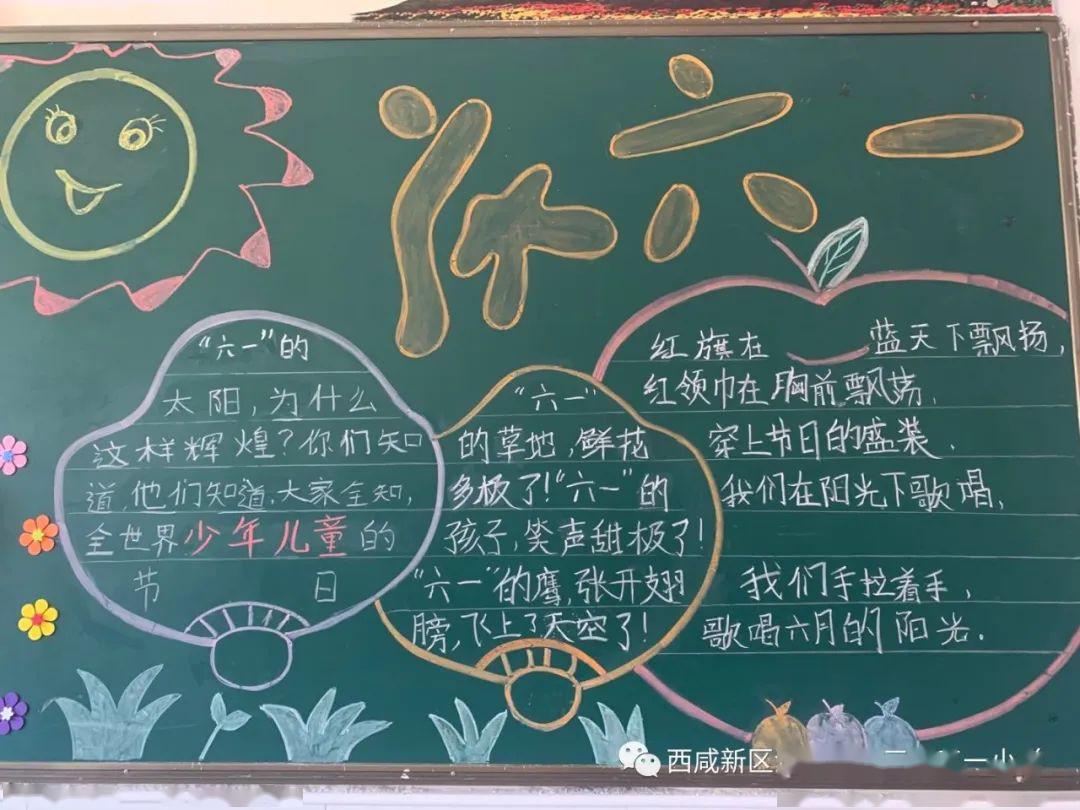 欢六一
“六一”的
太阳，为什么
这样辉煌？你们知
道，他们知道，大家全知，
全世界少年儿童的
节日
“六一”
的草地，鲜花
多极了！“六一”的
孩子，笑声甜极了！
“六一”的鹰，张开翅
膀，飞上了天空了！
红旗在 蓝天下飘风扬，
红领巾在胸前飘荡，
穿上节日的盛装，
我们在阳光下歌唱，
我们手拉着手，
歌唱六月的阳光。
西咸新区
一小